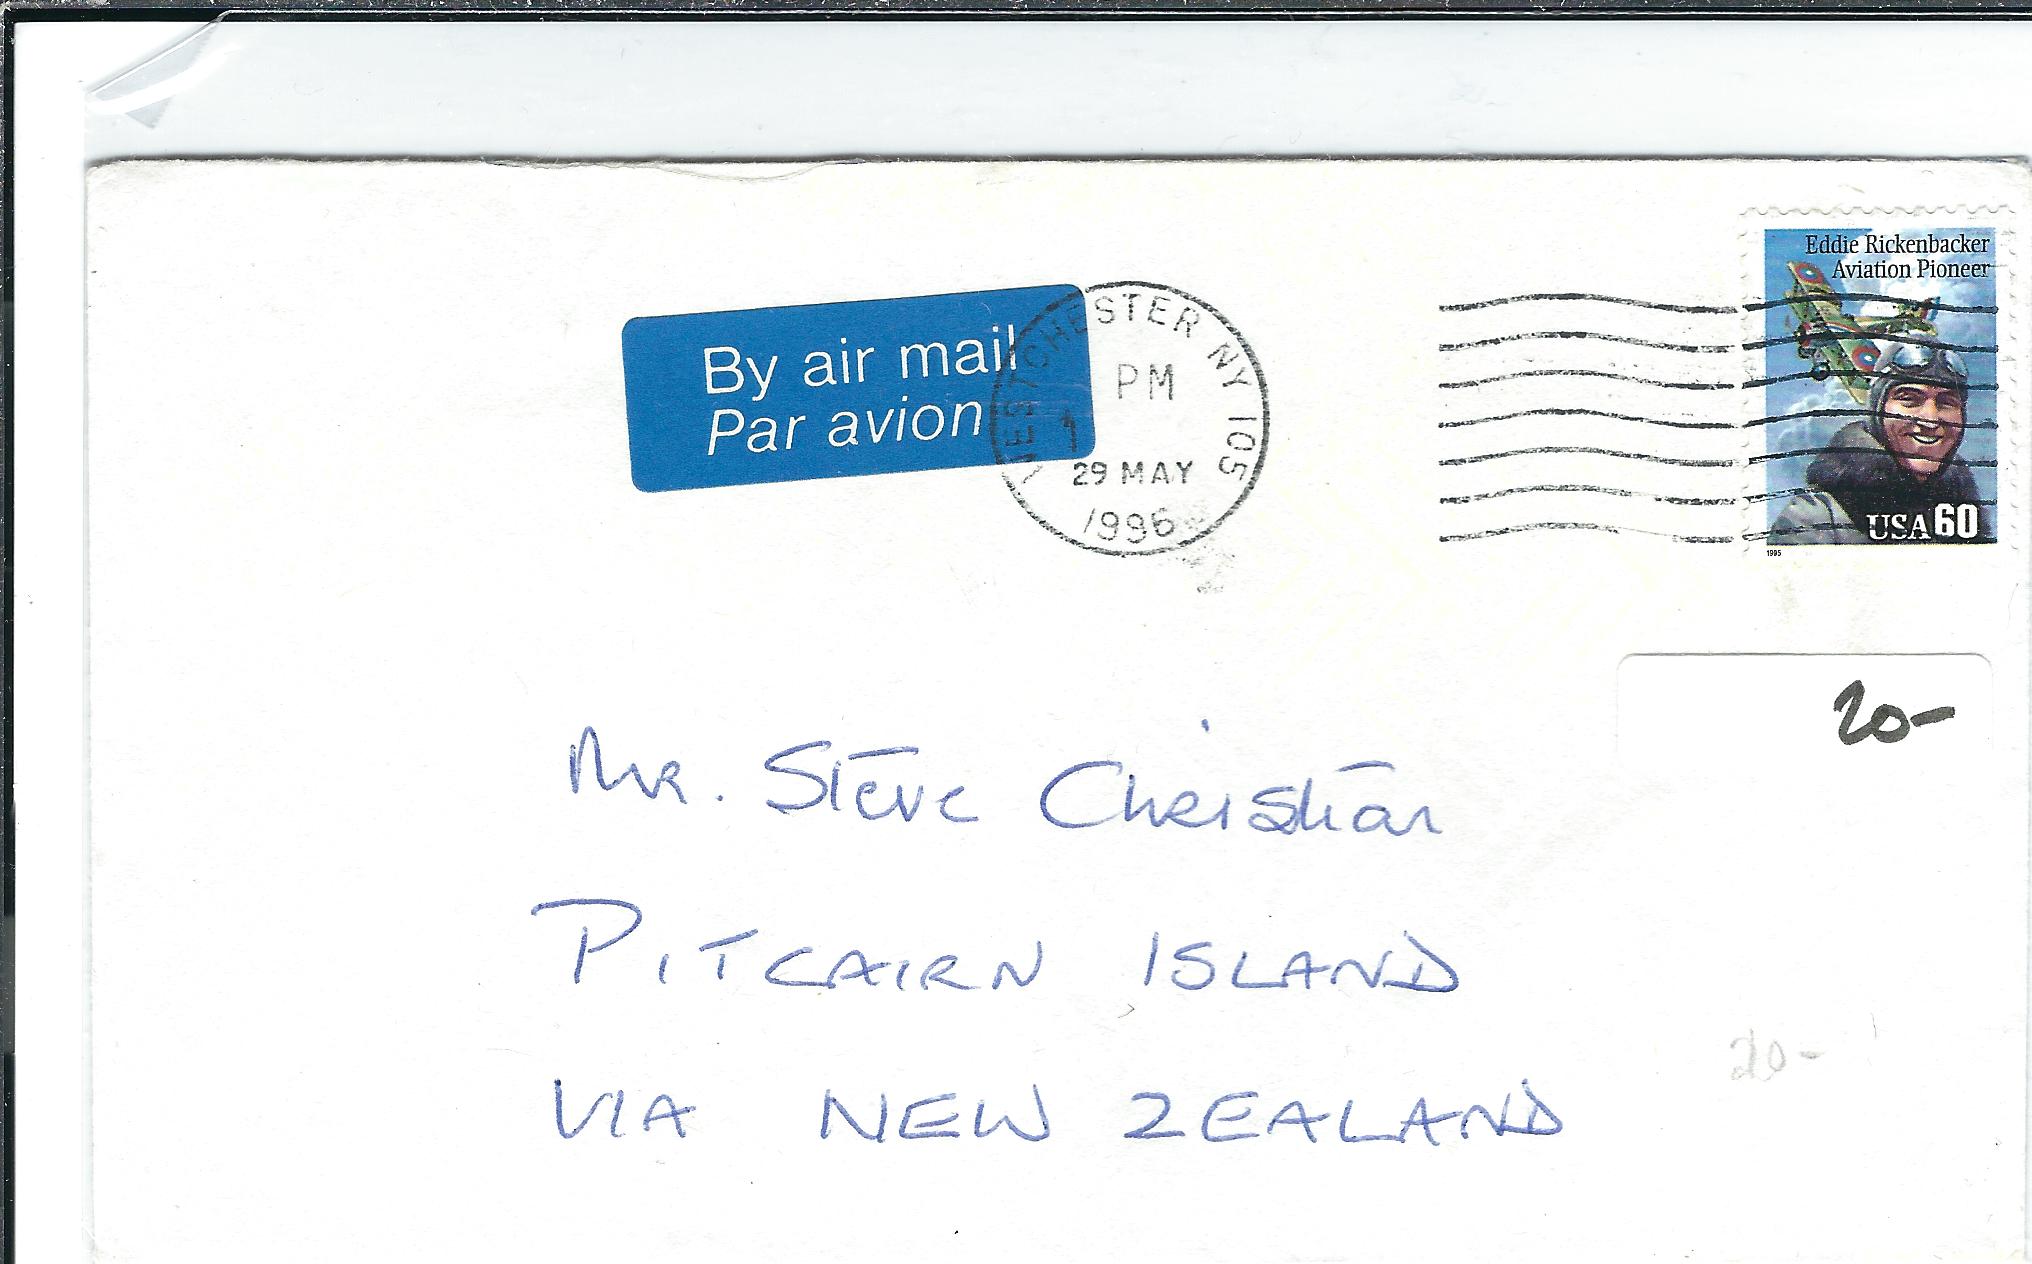 Eddie Rickenbacker
Aviation Pioneer
USA 60
1995
By air mail
Par avion
WESTCHESTER NY 105
PM
29 MAY
1996
20-
Mr. Steve Christian
PITCAIRN ISLAND
20-
VIA NEW ZEALAND